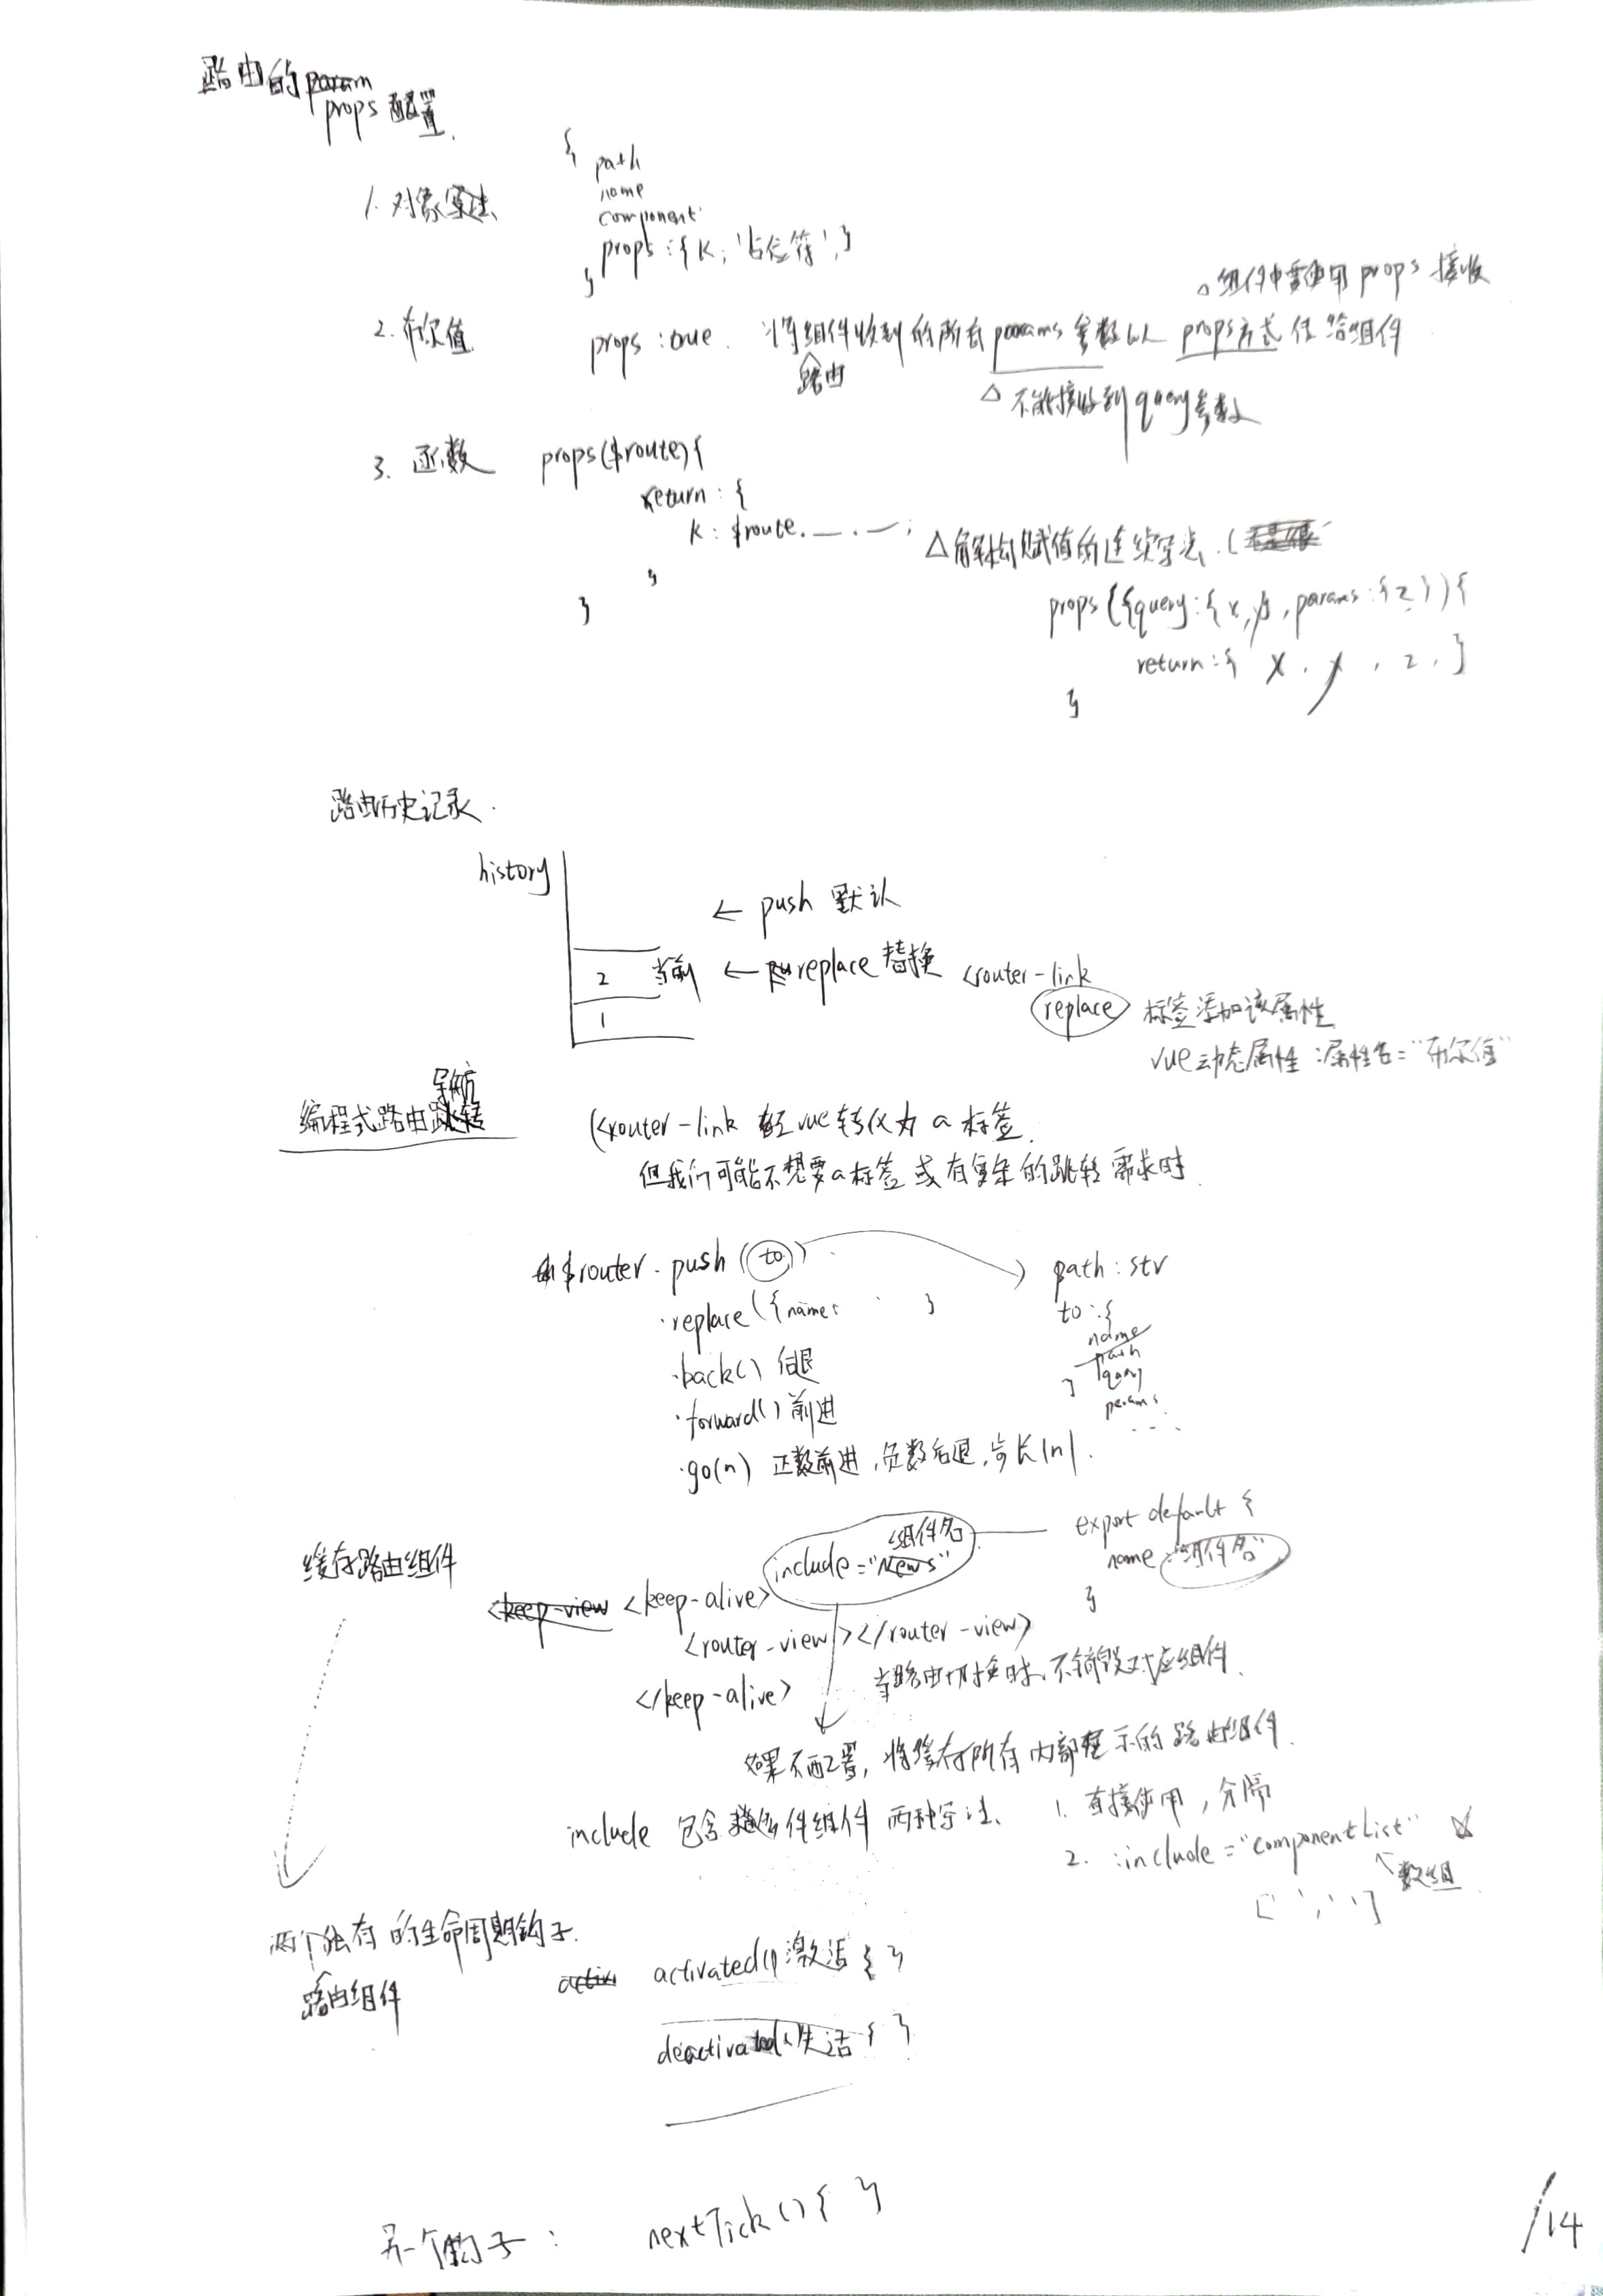 路由的param
props配置.
1. 对象写法
{
path
name
component
props:{k:'占位符',}
}
△组件中要使用props接收
2. 布尔值 props:true. 将组件收到的所有params参数以props方式传给组件
路由
△不能接收到query参数
3. 函数 props($route){
return:{
k: $route.__.__;
}
}
△解构赋值的连续写法.(
props({query:{x,y,params:{z}}){
return:{ x, y, z, }
}
路由历史记录.
history
← push 默认
2 当前 ← pureplace 替换 <router-link
replace 标签添加该属性
1
vue动态属性 :属性名="布尔值"
导航
编程式路由跳转 (<router-link 在vue转化为a标签.
但我们可能不想要a标签或有复杂的跳转需求时.
$router.push(to) path:str
.replace({name: } to:{
name
path
.back() 后退 query
}
params
.forward() 前进 ...
.go(n) 正数前进,负数后退,步长|n|.
缓存路由组件
组件名
include="News"
export default {
name:"组件名"
}
<keep-view <keep-alive>
<router-view></router-view>
</keep-alive> 当路由切换时,不销毁对应组件.
如果不配置,将缓存所有内部展示的路由组件.
include 包含多件组件 两种写法. 1. 直接使用,分隔
2. :include="componentList"
数组
[' ',' ']
两个独有的生命周期钩子.
路由组件
activ activated() 激活 { }
deactivated 失活 { }
另一个钩子: nextTick(){ }
/14